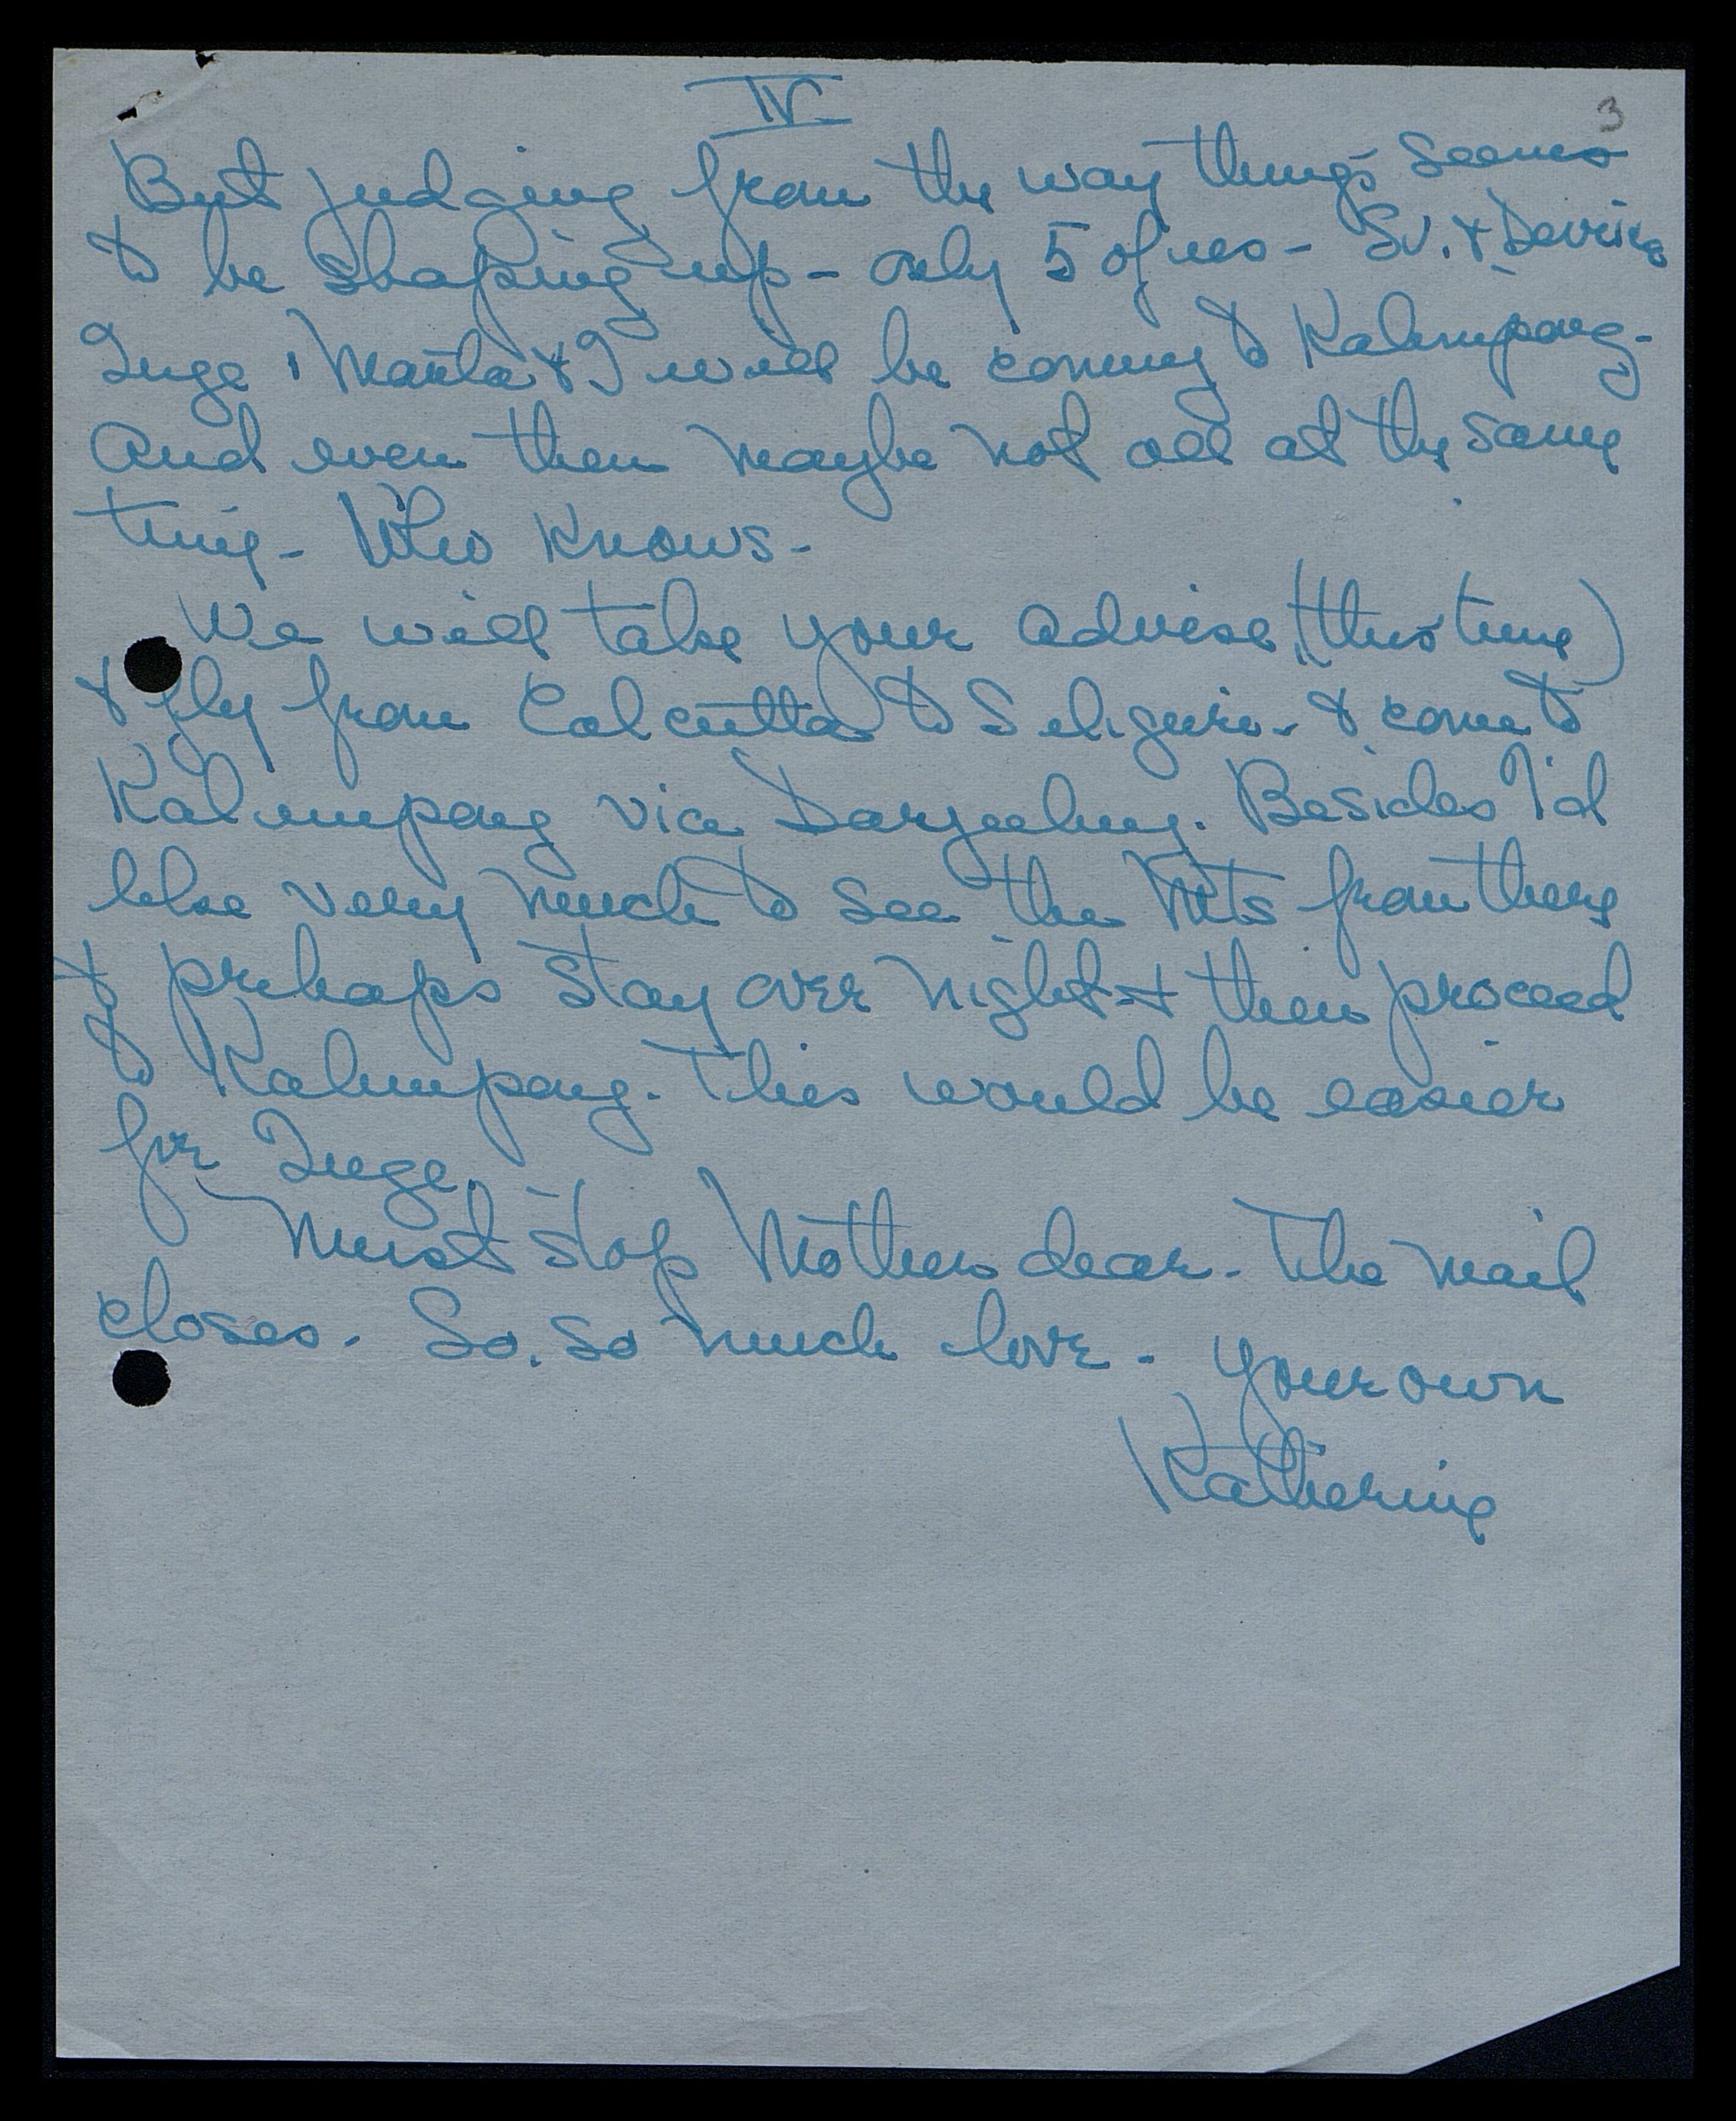 IV
3
But judging from the way things seems
to be shaping up - only 5 of us - Sv. & Devika
Inge, Manla & I will be coming to Kalimpong.
And even then maybe not all at the same
time - Who Knows -
We will take your advise (this time)
& fly from Calcutta to Seliguri - & come to
Kalimpong via Darjeeling. Besides I'd
like very much to see the Mts from there
& prehaps stay over night & then proceed
to Kalimpong. This would be easier
for Inge.
Must stop Mother dear - The mail
closes. So, so much love - Your own
Katherine